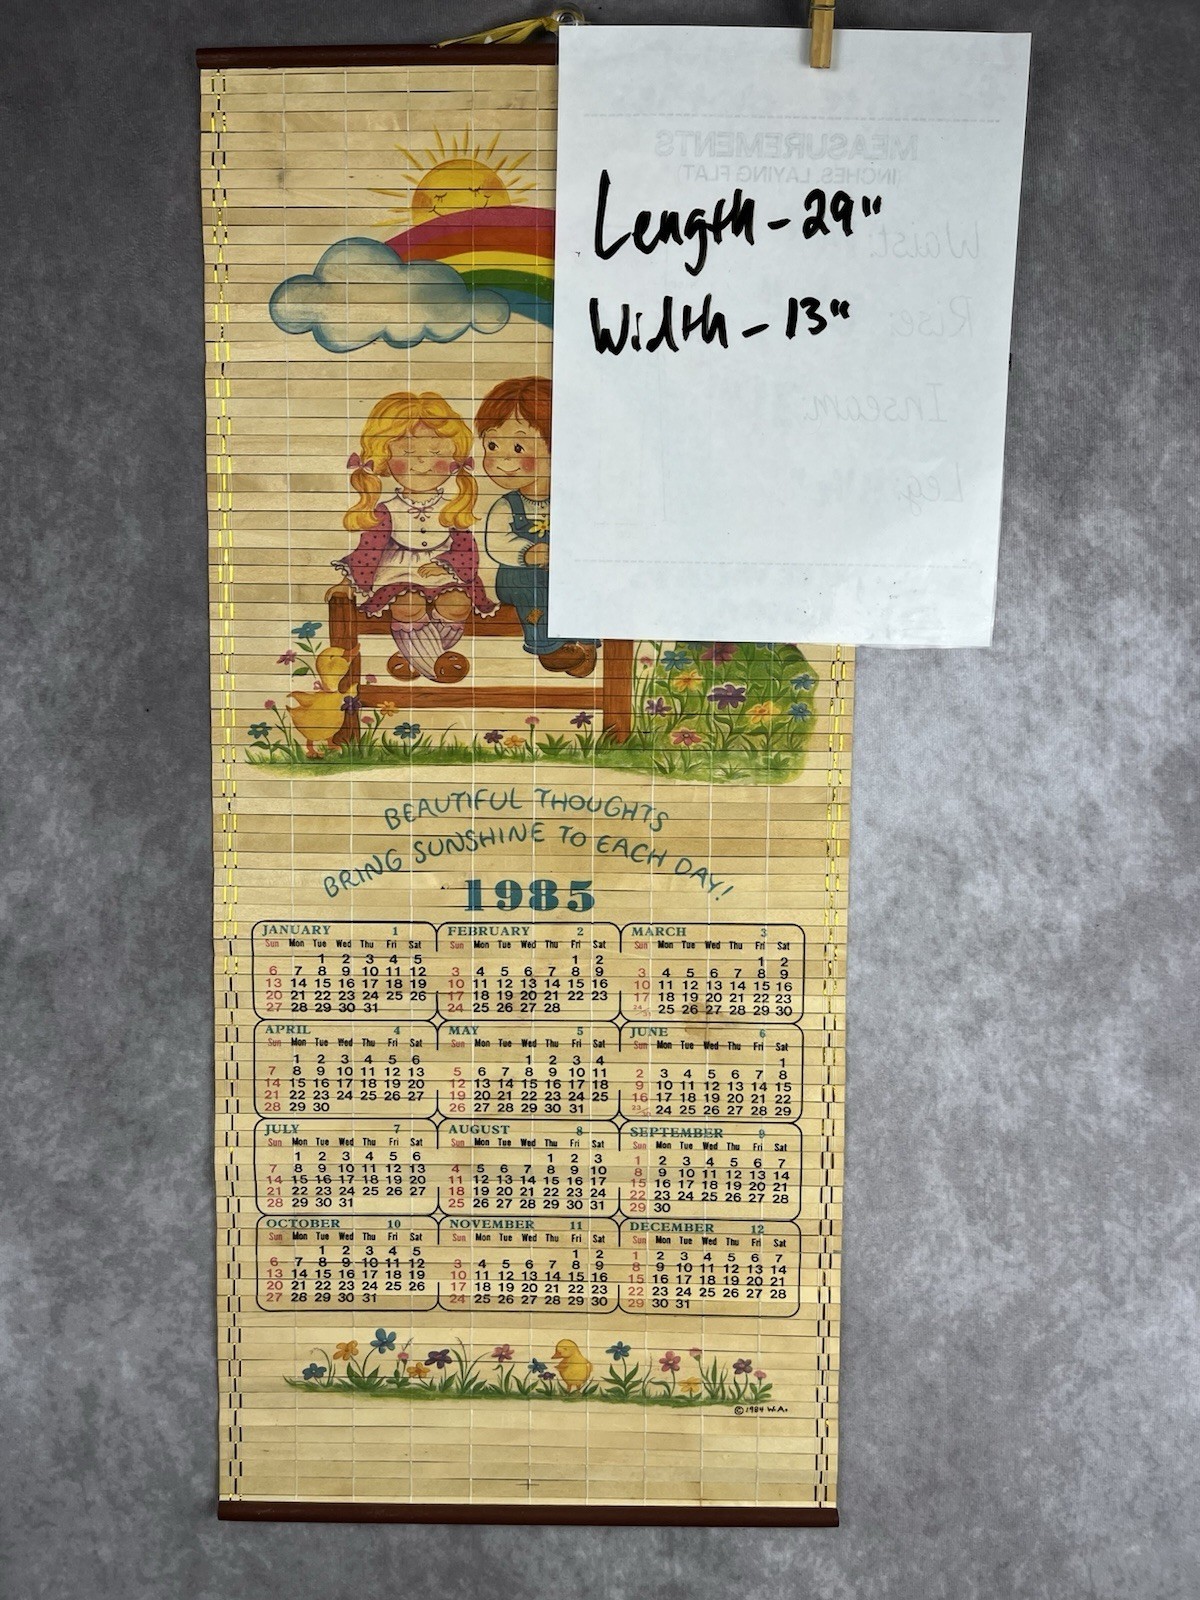 MEASUREMENTS
(INCHES, LAYING FLAT)
Waist:
Rise:
Inseam:
Leg:
Length - 29"
Width - 13"
BEAUTIFUL THOUGHTS
BRING SUNSHINE TO EACH DAY!
1985
JANUARY 1
Sun Mon Tue Wed Thu Fri Sat
1 2 3 4 5
6 7 8 9 10 11 12
13 14 15 16 17 18 19
20 21 22 23 24 25 26
27 28 29 30 31
FEBRUARY 2
Sun Mon Tue Wed Thu Fri Sat
1 2
3 4 5 6 7 8 9
10 11 12 13 14 15 16
17 18 19 20 21 22 23
24 25 26 27 28
MARCH 3
Sun Mon Tue Wed Thu Fri Sat
1 2
3 4 5 6 7 8 9
10 11 12 13 14 15 16
17 18 19 20 21 22 23
24/31 25 26 27 28 29 30
APRIL 4
Sun Mon Tue Wed Thu Fri Sat
1 2 3 4 5 6
7 8 9 10 11 12 13
14 15 16 17 18 19 20
21 22 23 24 25 26 27
28 29 30
MAY 5
Sun Mon Tue Wed Thu Fri Sat
1 2 3 4
5 6 7 8 9 10 11
12 13 14 15 16 17 18
19 20 21 22 23 24 25
26 27 28 29 30 31
JUNE 6
Sun Mon Tue Wed Thu Fri Sat
1
2 3 4 5 6 7 8
9 10 11 12 13 14 15
16 17 18 19 20 21 22
23/30 24 25 26 27 28 29
JULY 7
Sun Mon Tue Wed Thu Fri Sat
1 2 3 4 5 6
7 8 9 10 11 12 13
14 15 16 17 18 19 20
21 22 23 24 25 26 27
28 29 30 31
AUGUST 8
Sun Mon Tue Wed Thu Fri Sat
1 2 3
4 5 6 7 8 9 10
11 12 13 14 15 16 17
18 19 20 21 22 23 24
25 26 27 28 29 30 31
SEPTEMBER 9
Sun Mon Tue Wed Thu Fri Sat
1 2 3 4 5 6 7
8 9 10 11 12 13 14
15 16 17 18 19 20 21
22 23 24 25 26 27 28
29 30
OCTOBER 10
Sun Mon Tue Wed Thu Fri Sat
1 2 3 4 5
6 7 8 9 10 11 12
13 14 15 16 17 18 19
20 21 22 23 24 25 26
27 28 29 30 31
NOVEMBER 11
Sun Mon Tue Wed Thu Fri Sat
1 2
3 4 5 6 7 8 9
10 11 12 13 14 15 16
17 18 19 20 21 22 23
24 25 26 27 28 29 30
DECEMBER 12
Sun Mon Tue Wed Thu Fri Sat
1 2 3 4 5 6 7
8 9 10 11 12 13 14
15 16 17 18 19 20 21
22 23 24 25 26 27 28
29 30 31
©1984 W.A.